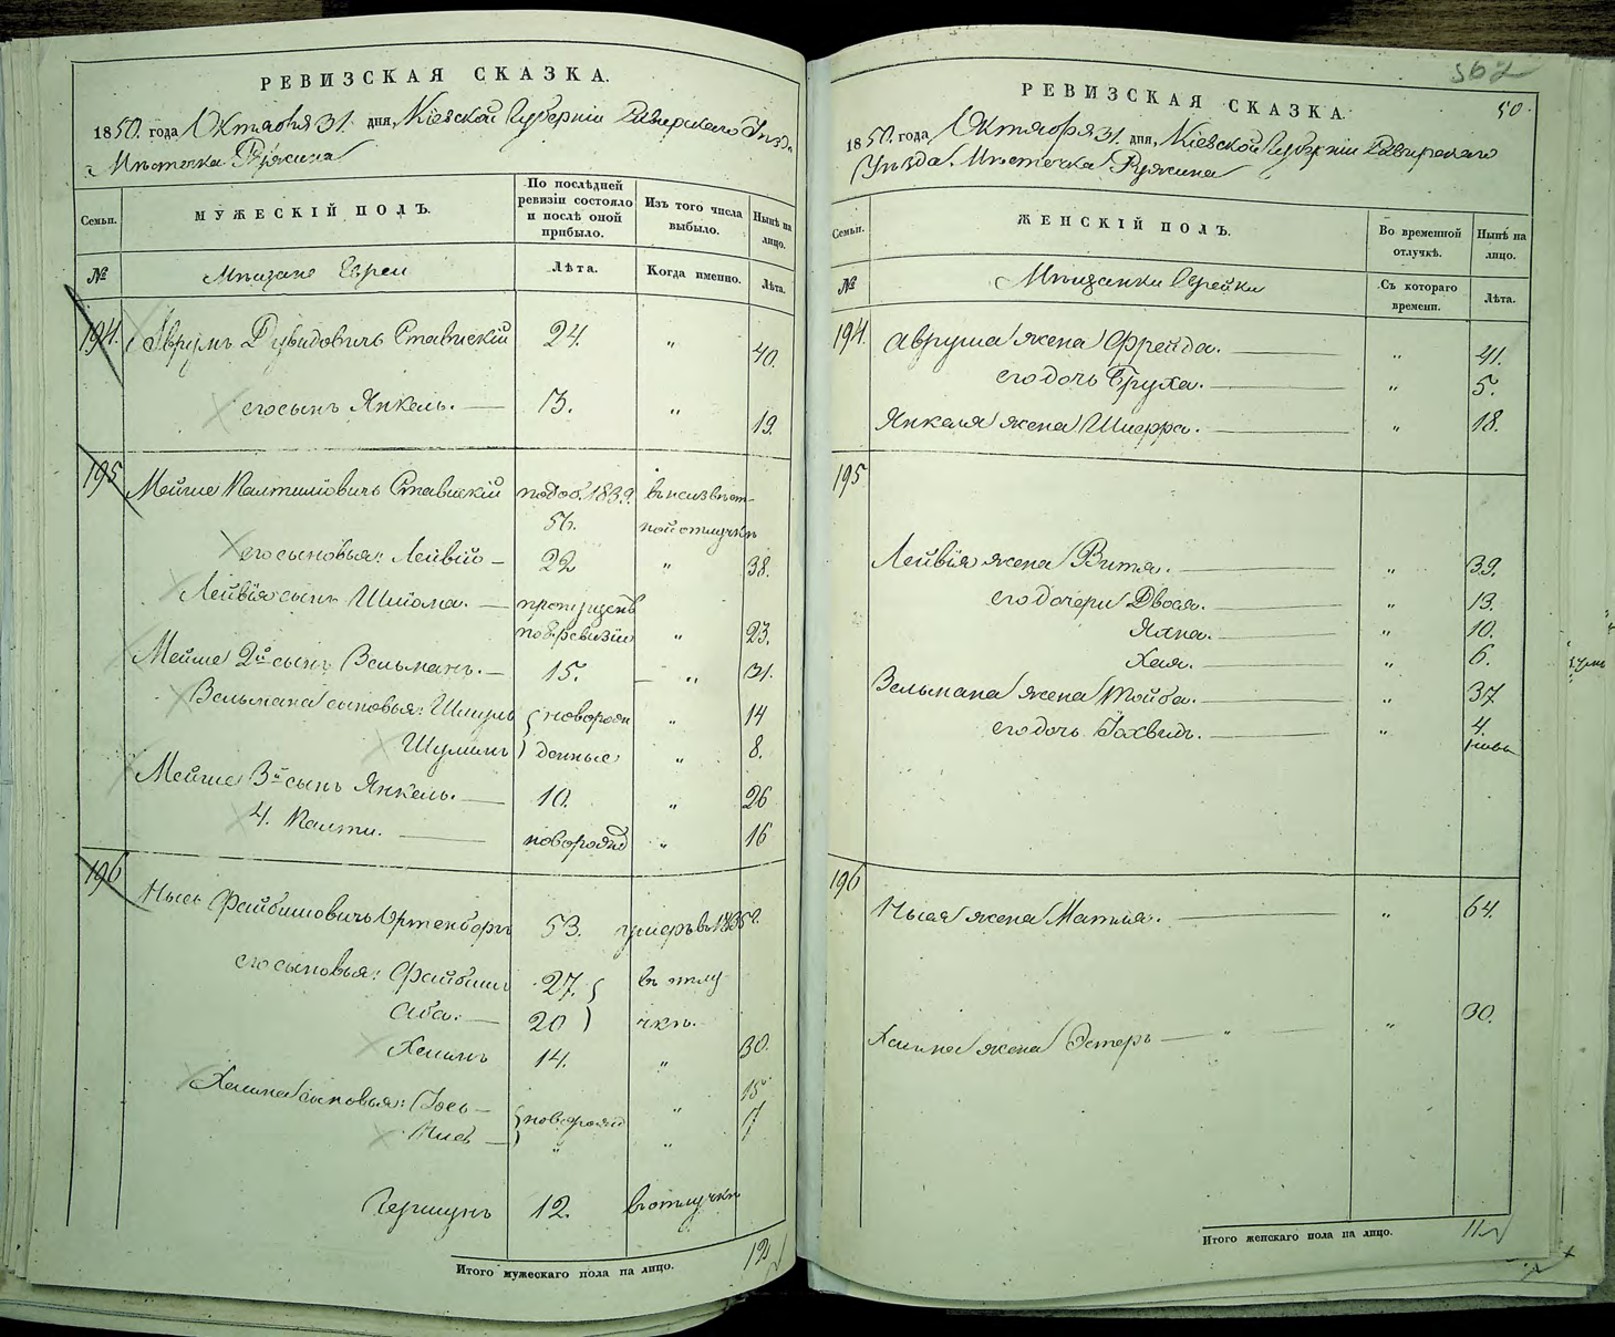 РЕВИЗСКАЯ СКАЗКА.
1850. года Октября 31. дня, Кіевской Губерніи Сквирскаго Уѣзда
Мѣстечка Ружина
Семьи. МУЖЕСКІЙ ПОЛЪ. По послѣдней ревизіи состояло и послѣ оной прибыло. Изъ того числа выбыло. Нынѣ на лицо.
№ Мѣщане Евреи Лѣта. Когда именно. Лѣта.
194. Аврумъ Дувидовичъ Ставискій 24. " 40.
его сынъ Янкель. — 13. " 19.
195 Мейше Палтиловичъ Ставискій по доб. 1839. въ неизвѣст-
56. ной отлучкѣ
его сыновья: Лейвій — 22 " 38.
Лейвія сынъ Шліома. — пропущенъ
по 8. ревизіи " 23.
Мейше 2й сынъ Вельманъ. — 15. — " 31.
Вельмана сыновья: Шмуль новорож " 14
Шулимъ денные " 8.
Мейше 3й сынъ Янкель. — 10. " 26
4. Палти. — новорожд " 16
196 Нысь Файбишовичъ Ортенбергъ 53. умеръ въ 1835г.
его сыновья: Файбишъ 27. въ отлу
Аба. — 20 чкѣ.
Хаимъ 14. " 30.
Хаима сыновья: Іось — новорожд " 15
Нысь — " " 7
Гершунъ 12. въ отлучкѣ
Итого мужескаго пола на лицо. 12
562
50.
РЕВИЗСКАЯ СКАЗКА.
1850. года Октября 31. дня, Кіевской Губерніи Сквирскаго
Уѣзда. Мѣстечка Ружина
Семьи. ЖЕНСКІЙ ПОЛЪ. Во временной отлучкѣ. Нынѣ на лицо.
№ Мѣщанки Еврейки Съ котораго времени. Лѣта.
194. Аврума жена Фрейда. — " 41.
его дочь Бруха. — " 5.
Янкеля жена Шифра. — " 18.
195
Лейвія жена Витя. — " 39.
его дочери Двося. — " 13.
Яхна. — " 10.
Хая. — " 6.
Вельмана жена Тойба. — " 37
его дочь Іохвидъ. — " 4.
196 Ныся жена Матля. — " 64.
Хаима жена Эстеръ — " — " 30.
Итого женскаго пола на лицо. 11